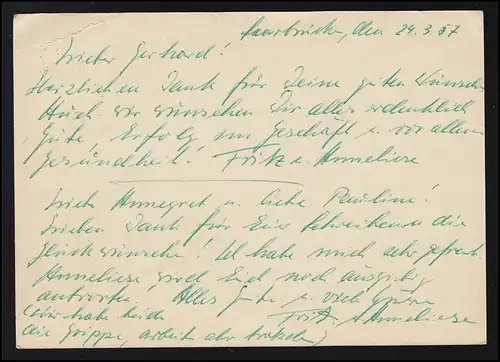 Saarbrücken, den 24.3.57
Lieber Gerhard!
Herzlichen Dank für Deine guten Wünsche
Auch wir wünschen Dir alles erdenklich
Gute, Erfolg im Geschäft u. vor allem
Gesundheit! Fritz u. Anneliese
Liebe Annegret u. liebe Pauline!
Lieben Dank für Euer Schreiben u. die
Glückwünsche! Ich habe mich sehr gefreut.
Anneliese wird Euch noch ausgiebig
antworten. Alles Gute u. viele Grüsse
(Wir haben beide Fritz u. Anneliese
die Grippe, arbeiten aber trotzdem)